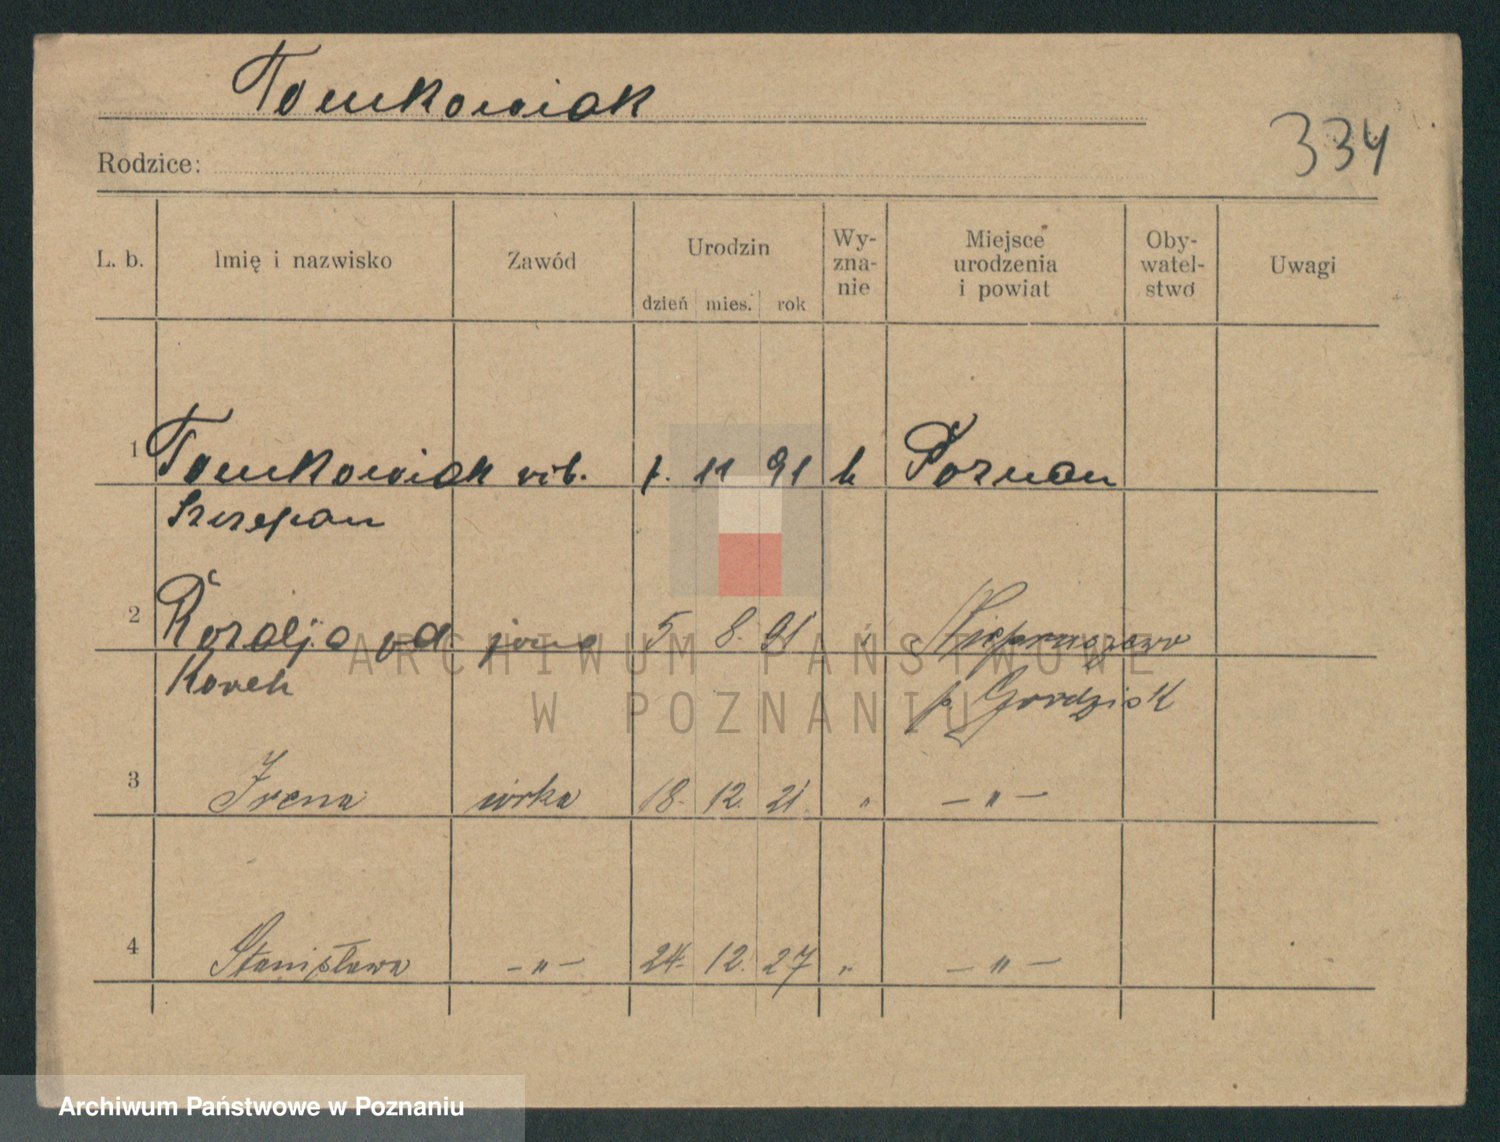 Tomkowiak
334
Rodzice:
L. b. Imię i nazwisko Zawód Urodzin dzień mies. rok Wy-zna-nie Miejsce urodzenia i powiat Oby-watel-stwo Uwagi
1 Tomkowiak rob. 7. 11 91 k Poznan
Szczepan
2 żona 5 8. 91 "
p. Grodzisk
3 Irena córka 18. 12. 21 " — " —
4 Stanisława — " — 24. 12. 27 " — " —
ARCHIWUM PAŃSTWOWE
W POZNANIU
Archiwum Państwowe w Poznaniu